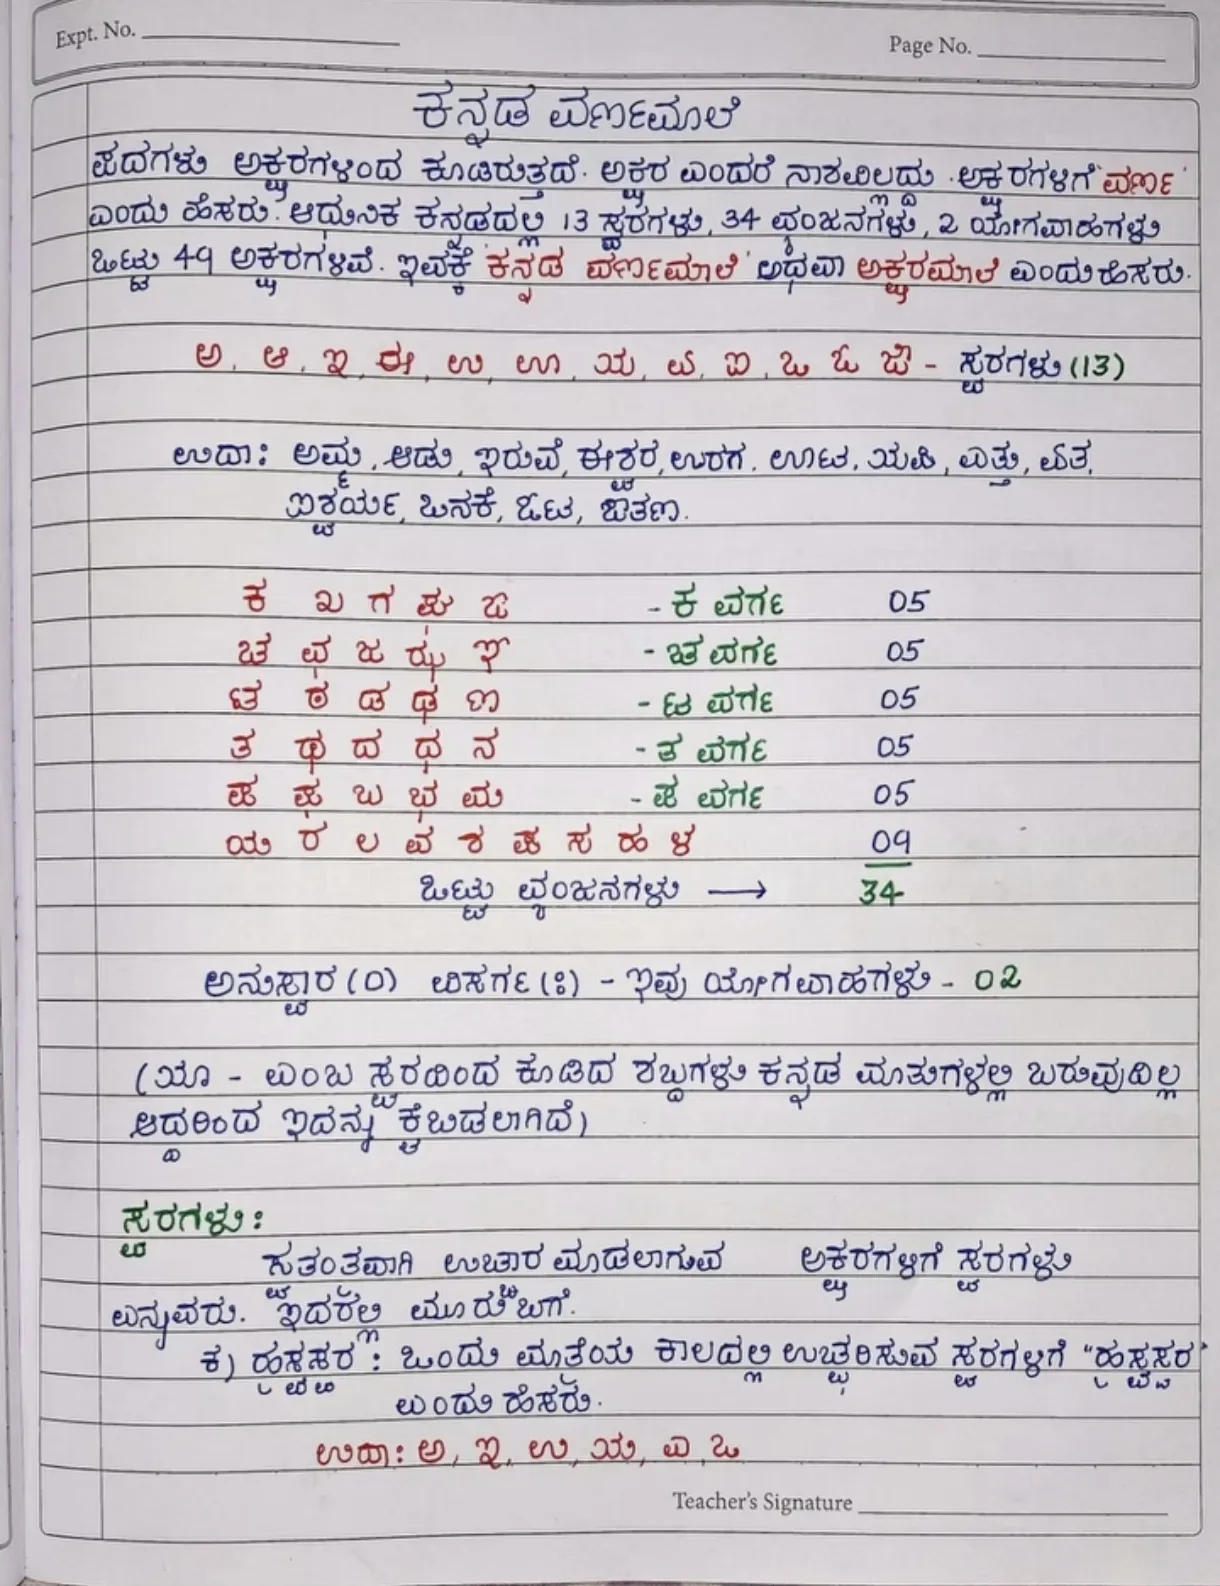 Expt. No.
Page No.
ಕನ್ನಡ ವರ್ಣಮಾಲೆ
ಪದಗಳು ಅಕ್ಷರಗಳಿಂದ ಕೂಡಿರುತ್ತದೆ. ಅಕ್ಷರ ಎಂದರೆ ನಾಶವಿಲ್ಲದ್ದು. ಅಕ್ಷರಗಳಿಗೆ 'ವರ್ಣ'
ಎಂದು ಹೆಸರು. ಆಧುನಿಕ ಕನ್ನಡದಲ್ಲಿ 13 ಸ್ವರಗಳು, 34 ವ್ಯಂಜನಗಳು, 2 ಯೋಗವಾಹಗಳು
ಒಟ್ಟು 49 ಅಕ್ಷರಗಳಿವೆ. ಇವಕ್ಕೆ 'ಕನ್ನಡ ವರ್ಣಮಾಲೆ' ಅಥವಾ ಅಕ್ಷರಮಾಲೆ ಎಂದು ಹೆಸರು.
ಅ, ಆ, ಇ, ಈ, ಉ, ಊ, ಋ, ಏ, ಐ, ಒ ಓ ಔ - ಸ್ವರಗಳು (13)
ಉದಾ: ಅಮ್ಮ, ಆಡು, ಇರುವೆ, ಈಶ್ವರ, ಉರಗ, ಊಟ, ಋಷಿ, ಎತ್ತು, ಏತ,
ಐಶ್ವರ್ಯ, ಒನಕೆ, ಓಟ, ಔತಣ.
ಕ ಖ ಗ ಘ ಙ - ಕ ವರ್ಗ 05
ಚ ಛ ಜ ಝ ಞ - ಚ ವರ್ಗ 05
ಟ ಠ ಡ ಢ ಣ - ಟ ವರ್ಗ 05
ತ ಥ ದ ಧ ನ - ತ ವರ್ಗ 05
ಪ ಫ ಬ ಭ ಮ - ಪ ವರ್ಗ 05
ಯ ರ ಲ ವ ಶ ಷ ಸ ಹ ಳ 09
ಒಟ್ಟು ವ್ಯಂಜನಗಳು → 34
ಅನುಸ್ವಾರ (ಂ) ವಿಸರ್ಗ (ಃ) - ಇವು ಯೋಗವಾಹಗಳು - 02
(ಋೂ - ಎಂಬ ಸ್ವರದಿಂದ ಕೂಡಿದ ಶಬ್ದಗಳು ಕನ್ನಡ ಮಾತುಗಳಲ್ಲಿ ಬರುವುದಿಲ್ಲ
ಆದ್ದರಿಂದ ಇದನ್ನು ಕೈಬಿಡಲಾಗಿದೆ)
ಸ್ವರಗಳು:
ಸ್ವತಂತ್ರವಾಗಿ ಉಚ್ಚಾರ ಮಾಡಲಾಗುವ ಅಕ್ಷರಗಳಿಗೆ ಸ್ವರಗಳು
ಎನ್ನುವರು. ಇದರಲ್ಲಿ ಮೂರು ಬಗೆ.
ಕ) ಹೃಸ್ವಸ್ವರ : ಒಂದು ಮಾತ್ರೆಯ ಕಾಲದಲ್ಲಿ ಉಚ್ಚರಿಸುವ ಸ್ವರಗಳಿಗೆ "ಹೃಸ್ವಸ್ವರ"
ಎಂದು ಹೆಸರು.
ಉದಾ: ಅ, ಇ, ಉ, ಋ, ಎ, ಒ
Teacher's Signature